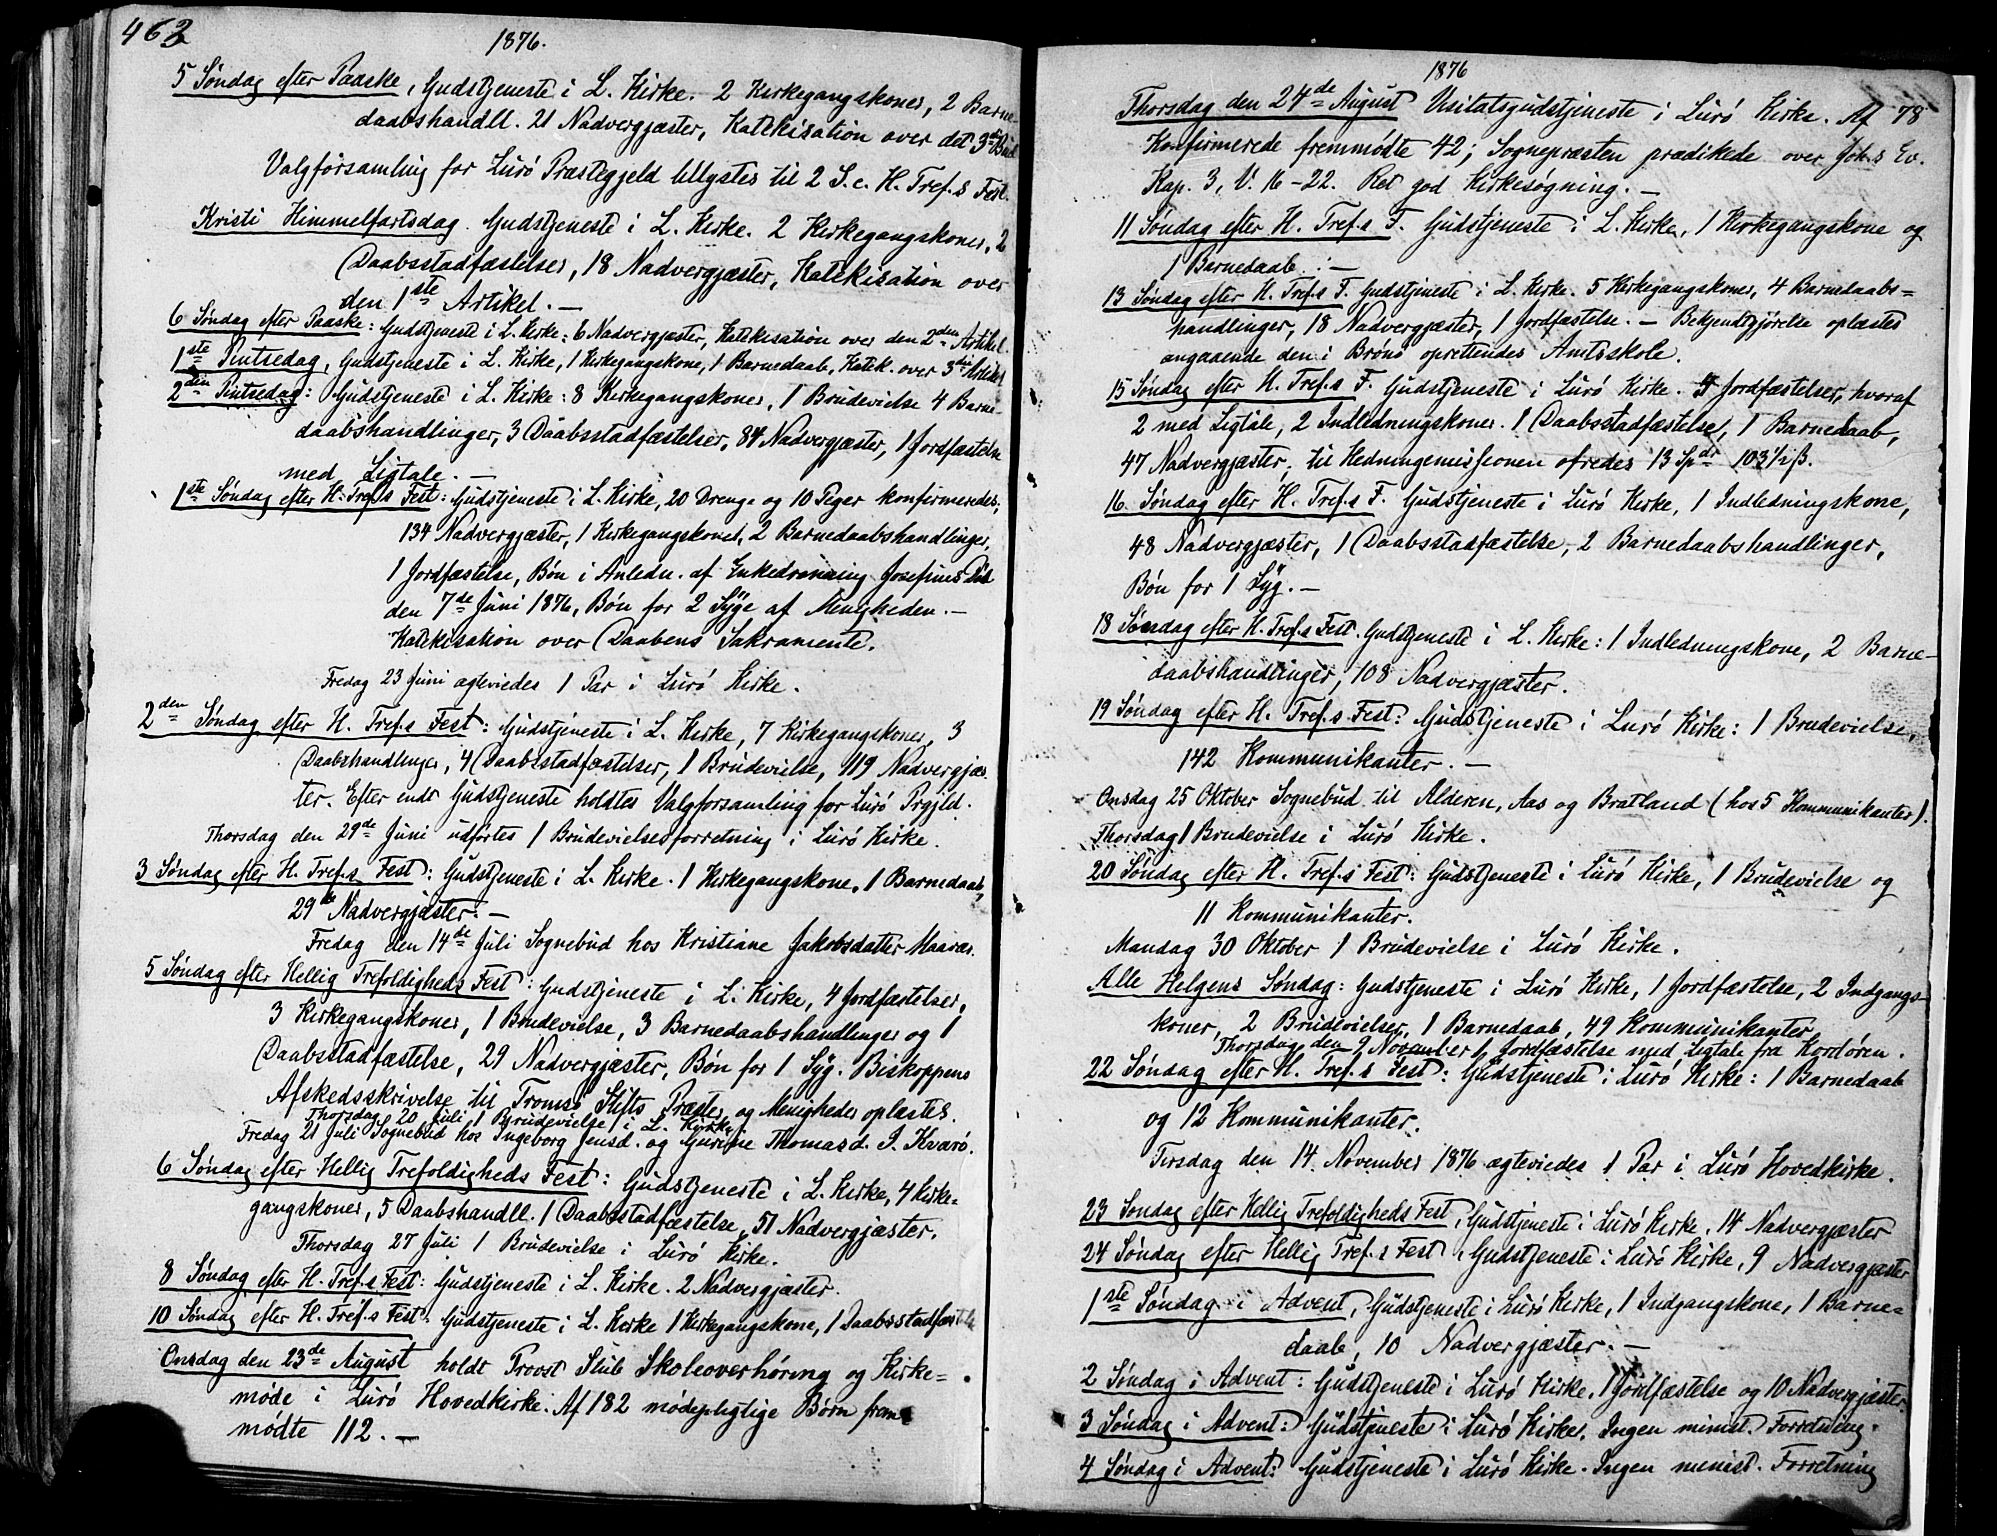 463
1876.
5 Søndag efter Paaske, Gudstjeneste i L. Kirke. 2 Kirkegangskoner, 2 Barne
daabshandll. 21 Nadvergjæster, Katekisation over det 3die Bud
Valgforsamling for Lurö Præstegjeld tillystes til 2 S. e. H. Tref.s Fest.
Kristi Himmelfartsdag. Gudstjeneste i L. Kirke. 2 Kirkegangskoner, 2
Daabsstadfæstelser, 18 Nadvergjæster, Katekisation over
den 1ste Artikel. —
6 Søndag efter Paaske: Gudstjeneste i L. Kirke: 6 Nadvergjæster, Katekisation over den 2den Artikel.
1ste Pintsedag, Gudstjeneste i L. Kirke, 1 Kirkegangskone, 1 Barnedaab, Katek. over 3die Artikel
2den Pintsedag: Gudstjeneste i L. Kirke: 8 Kirkegangskoner, 1 Brudevielse 4 Barne-
daabshandlinger, 3 Daabsstadfæstelser, 84 Nadvergjæster, 1 Jordfæstelse
med Ligtale. —
1ste Søndag efter H. Tref.s Fest: Gudstjeneste i L. Kirke, 20 Drenge og 10 Piger konfirmeredes,
134 Nadvergjæster, 1 Kirkegangskone, 2 Barnedaabshandlinger,
1 Jordfæstelse, Bön i Anledn. af Enkedronning Josefines Död
den 7de Juni 1876, Bön for 2 Syge af Menigheden. —
Katekisation over Daabens Sakramente.
Fredag 23 Juni ægteviedes 1 Par i Lurö Kirke.
2den Søndag efter H. Tref.s Fest: Gudstjeneste i L. Kirke, 7 Kirkegangskoner, 3
Daabshandlinger, 4 Daabsstadfæstelser, 1 Brudevielse, 119 Nadvergjæs-
ter. Efter endt Gudstjeneste holdtes Valgforsamling for Lurö Prgjld.
Thorsdag den 29de Juni udførtes 1 Brudevielsesforretning i Lurö Kirke.
3 Søndag efter H. Tref.s Fest: Gudstjeneste i L. Kirke. 1 Kirkegangskone, 1 Barnedaab,
29 Nadvergjæster. —
Fredag den 14de Juli Sognebud hos Kristiane Jakobsdatter Maaræs.
5 Søndag efter Hellig Trefoldigheds Fest: Gudstjeneste i L. Kirke, 4 Jordfæstelser,
3 Kirkegangskoner, 1 Brudevielse, 3 Barnedaabshandlinger og 1
Daabsstadfæstelse, 29 Nadvergjæster, Bön for 1 Syg. Biskoppens
Afskedsskrivelse til Tromsö Stifts Præster og Menigheder oplæstes.
Thorsdag 20 Juli 1 Brudevielse i L. Kirke
Fredag 21 Juli Sognebud hos Ingeborg Jensd. og Gurine Thomasd. I. Kvarö.
6 Søndag efter Hellig Trefoldigheds Fest: Gudstjeneste i L. Kirke, 4 Kirke-
gangskoner, 5 Daabshandll. 1 Daabsstadfæstelse, 51 Nadvergjæster.
Thorsdag 27 Juli 1 Brudevielse i Lurö Kirke.
8 Søndag efter H. Tref.s Fest: Gudstjeneste i L. Kirke. 2 Nadvergjæster.
10 Søndag efter H. Tref.s Fest: Gudstjeneste i L. Kirke 1 Kirkegangskone, 1 Daabsstadfæst
Onsdag den 23de August holdt Provst Stub Skoleoverhøring og Kirke=
møde i Lurö Hovedkirke. Af 182 mødepligtige Børn frem
mødte 112. —
1876
Thorsdag den 24de August Visitatsgudstjeneste i Lurö Kirke. Af 78
Konfirmerede fremmødte 42; Sognepræsten prædikede over Joh.s Ev.
Kap. 3, V. 16-22. Ret god Kirkesøgning. —
11 Søndag efter H. Tref.s F. Gudstjeneste i L. Kirke, 1 Kirkegangskone og
1 Barnedaab. —
13 Søndag efter H. Tref.s F. Gudstjeneste i L. Kirke. 5 Kirkegangskoner, 4 Barnedaabs=
handlinger, 18 Nadvergjæster, 1 Jordfæstelse. — Bekjendtgjørelse oplæstes
angaaende den i Brönö oprettendes Amtsskole.
15 Søndag efter H. Tref.s F. Gudstjeneste i Lurö Kirke. Jordfæstelser, hvoraf
2 med Ligtale, 2 Indledningskoner. 1 Daabsstadfæstelse, 1 Barnedaab,
47 Nadvergjæster; til Hedningemissionen ofredes 13 Spdr 103 1/2 ß.
16 Søndag efter H. Tref.s F. Gudstjeneste i Lurö Kirke, 1 Indledningskone,
48 Nadvergjæster, 1 Daabsstadfæstelse, 2 Barnedaabshandlinger,
Bön for 1 Syg. —
18 Søndag efter H. Tref.s Fest. Gudstjeneste i L. Kirke: 1 Indledningskone, 2 Barne-
daabshandlinger, 108 Nadvergjæster.
19 Søndag efter H. Tref.s Fest: Gudstjeneste i Lurö Kirke: 1 Brudevielse,
142 Kommunikanter. —
Onsdag 25 Oktober Sognebud til Alderen, Aas og Bratland (hos 5 Kommunikanter).
Thorsdag 1 Brudevielse i Lurö Kirke.
20 Søndag efter H. Tref.s Fest: Gudstjeneste i Lurö Kirke, 1 Brudevielse og
11 Kommunikanter.
Mandag 30 Oktober 1 Brudevielse i Lurö Kirke.
Alle Helgens Søndag: Gudstjeneste i Lurö Kirke, 1 Jordfæstelse, 2 Indgangs-
koner, 2 Brudevielser, 1 Barnedaab, 49 Kommunikanter.
Thorsdag den 9 November 1 Jordfæstelse med Ligtale fra Kordören.
22 Søndag efter H. Tref.s Fest: Gudstjeneste i Lurö Kirke: 1 Barnedaab
og 12 Kommunikanter.
Tirsdag den 14 November 1876 ægteviedes 1 Par i Lurö Hovedkirke.
23 Søndag efter Hellig Trefoldigheds Fest, Gudstjeneste i Lurö Kirke, 14 Nadvergjæster
24 Søndag efter Hellig Tref.s Fest, Gudstjeneste i Lurö Kirke, 9 Nadvergjæster
1ste Søndag i Advent, Gudstjeneste i Lurö Kirke, 1 Indgangskone, 1 Barne=
daab, 10 Nadvergjæster. —
2 Søndag i Advent: Gudstjeneste i Lurö Kirke, 1 Jordfæstelse og 10 Nadvergjæster.
3 Søndag i Advent: Gudstjeneste i Lurö Kirke. Ingen minist. Forretning.
4 Søndag i Advent: Gudstjeneste i Lurö Kirke. Ingen minist. Forretning